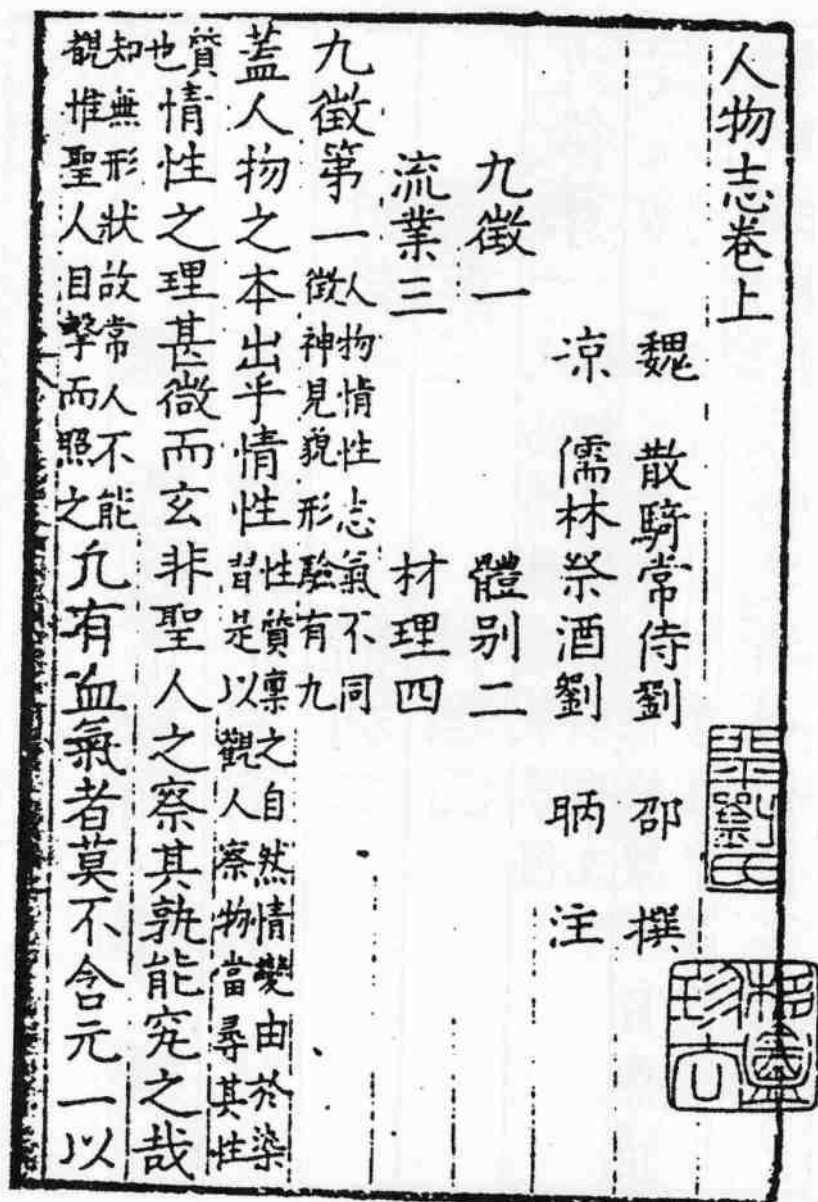 人物志卷上
魏 散騎常侍劉 邵 撰
凉 儒林祭酒劉 昞 注
九徵一 體别二
流業三 材理四
九徵第一人物情性志氣不同徵神見貌形驗有九
蓋人物之本出乎情性性質禀之自然情變由於染習是以觀人察物當尋其性
質也情性之理甚微而玄非聖人之察其孰能究之哉
知無形狀故常人不能觀惟聖人目擊而照之凢有血氣者莫不含元一以